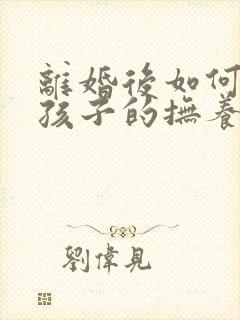 離婚後如何
孩子的撫養
劉偉見